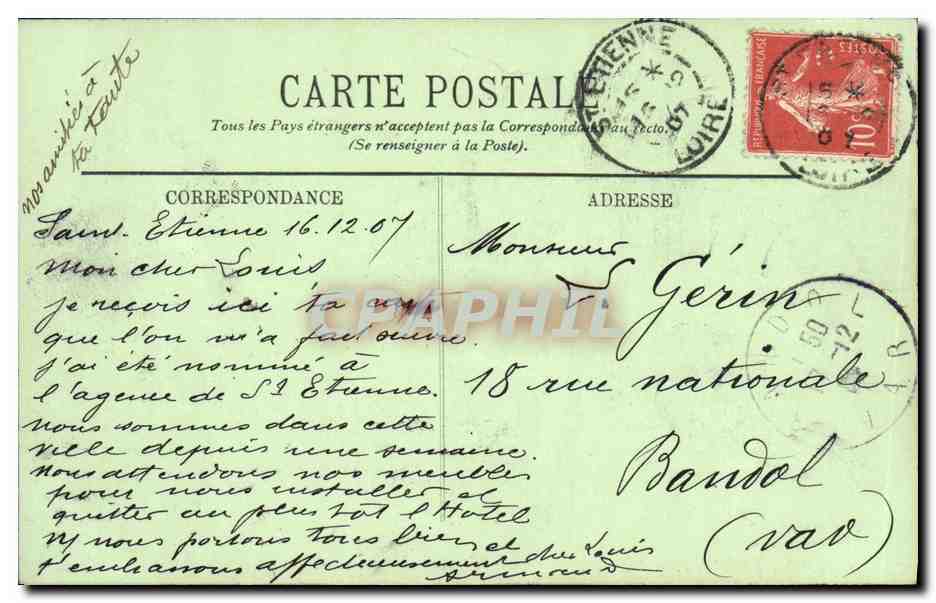 CARTE POSTALE
Tous les Pays étrangers n'acceptent pas la Correspondance au recto.
(Se renseigner à la Poste).
nos amitiés à
ta tante
CORRESPONDANCE
Saint. Etienne 16.12.07
Mon cher Louis
je reçois ici ta
que l'on m'a fait suivre.
j'ai été nommé à
l'agence de St Etienne.
nous sommes dans cette
ville depuis une semaine.
Nous attendons nos meubles
pour nous installer et
quitter au plus tôt l'Hotel
nous portons tous bien et
t'embrassons affectueusement cher Louis
Armand
ADRESSE
Monsieur
L Gérin
18 rue nationale
Bandol
(Var)
ST ETIENNE
LOIRE
POSTES
10
CPAPHIL